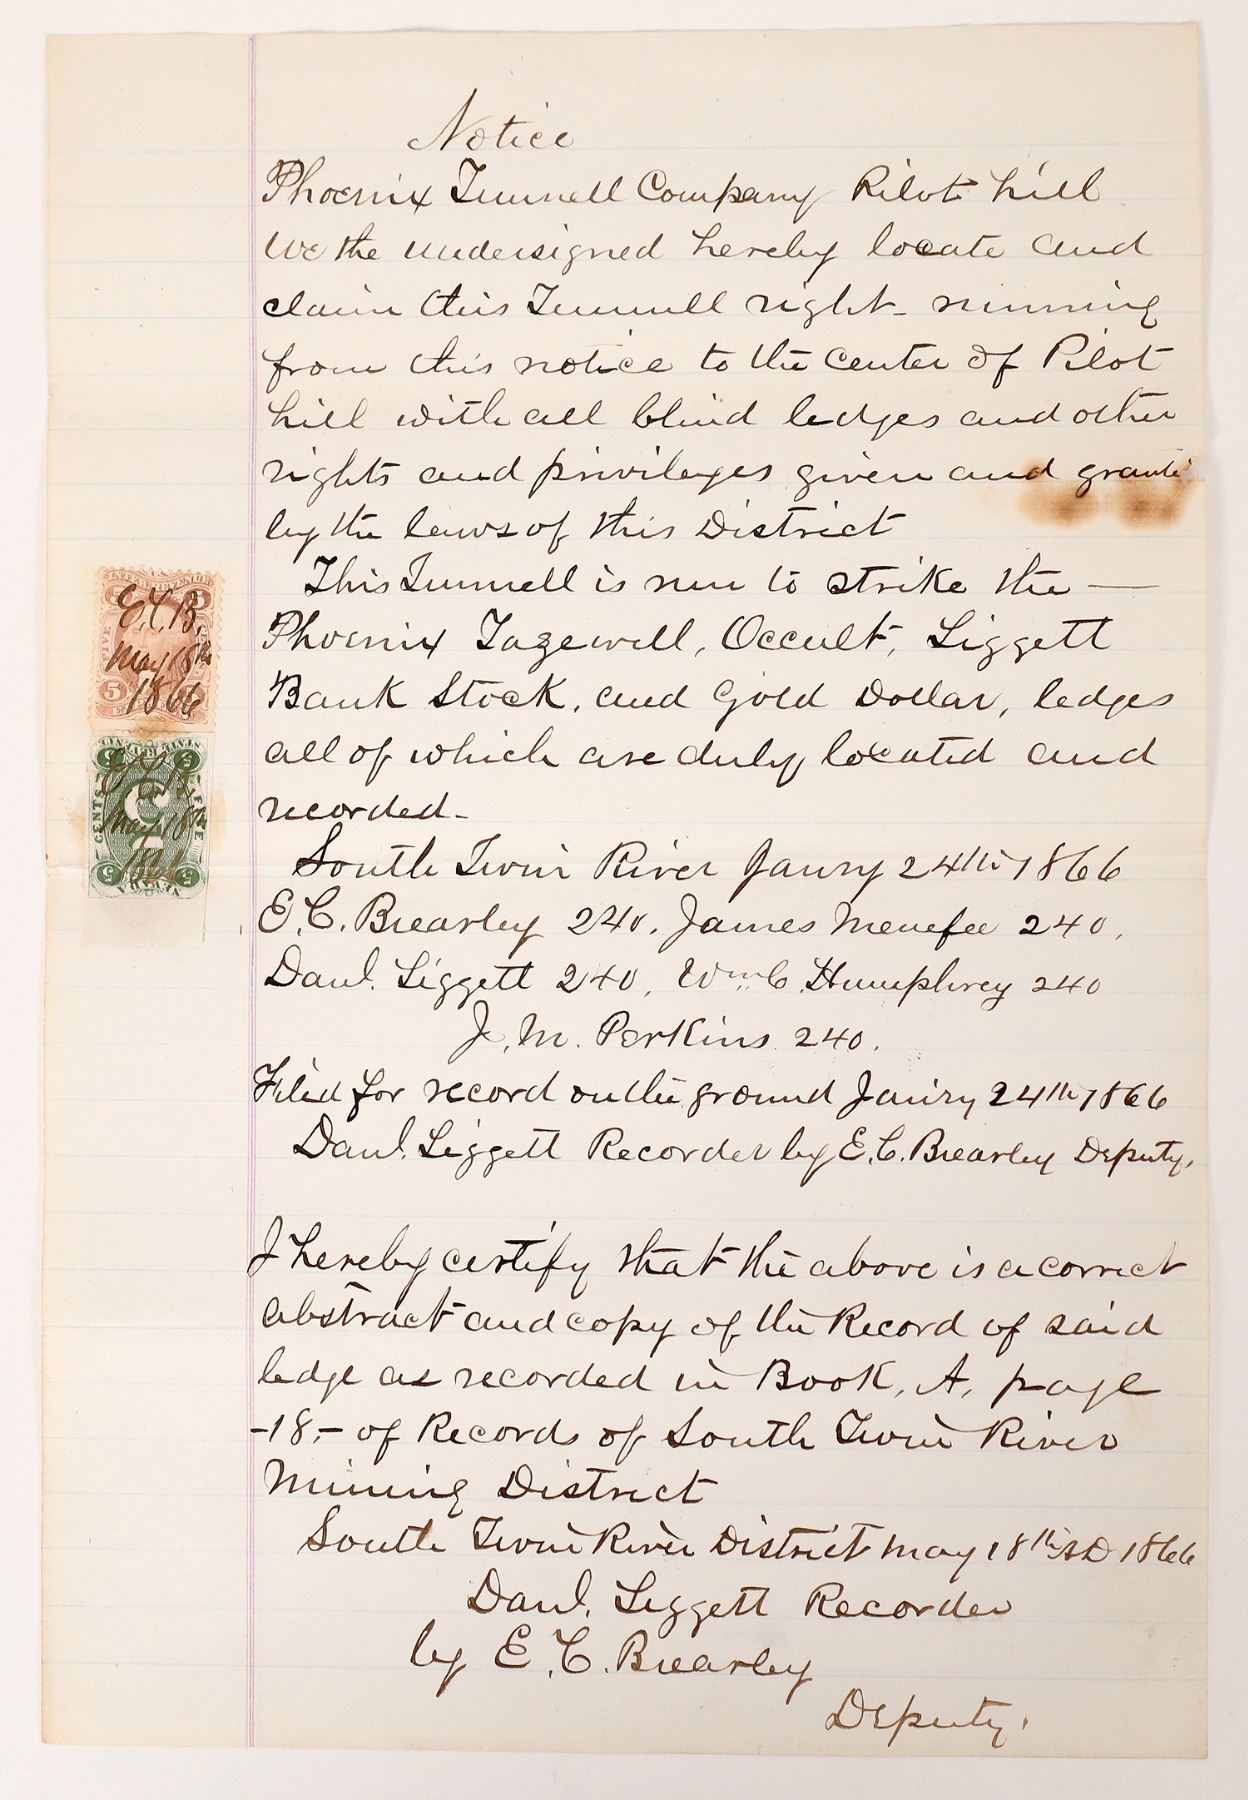 Notice
Phoenix Tunnell Company Pilot hill
We the undersigned hereby locate and
claim this Tunnell right - running
from this notice to the center of Pilot
hill with all blind ledges and other
rights and privileges given and grante
by the laws of this District
This Tunnell is run to strike the —
Phoenix Tazewell, Occult, Liggett
Bank Stock, and Gold Dollar, ledges
all of which are duly located and
recorded -
South Twin River Janry 24th 1866
E. C. Brearley 240. James Menefee 240.
Danl. Liggett 240, Wm C. Humphrey 240
J. M. Perkins 240.
Filed for record on the ground Janry 24th 1866
Danl. Liggett Recorder by E. C. Brearley Deputy.
I hereby certify that the above is a correct
abstract and copy of the Record of said
ledge as recorded in Book, A, page
-18,- of Records of South Twin River
Mining District
South Twin River District May 18th AD 1866
Danl. Liggett Recorder
by E. C. Brearley
Deputy.
E.C.B.
May 18th
1866
5
CENTS
FIVE
May 18th
1866
5 5
NEVADA